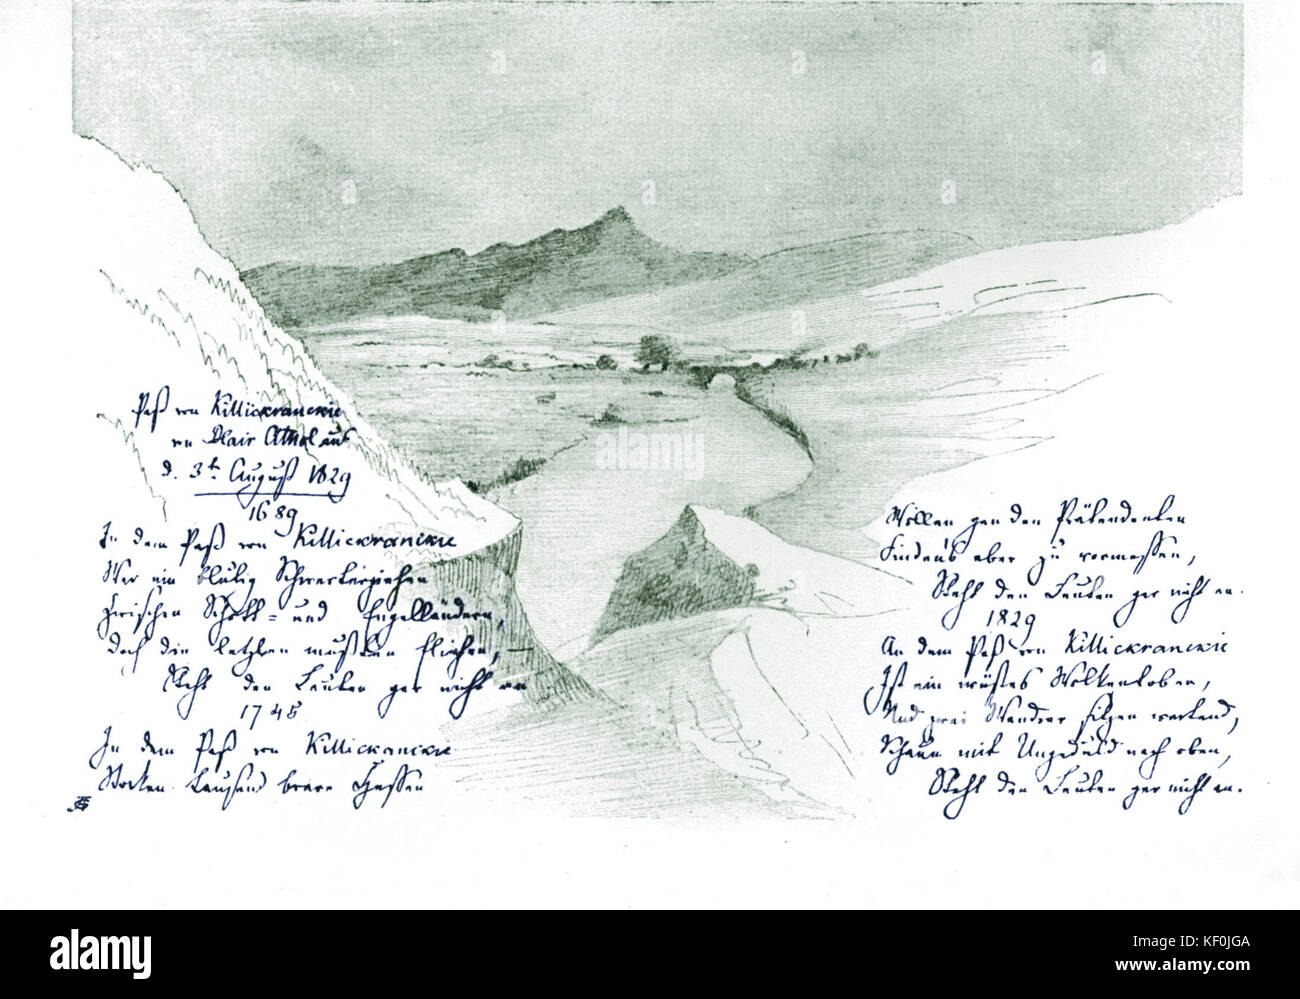 Paß von Killickrancie
von Blair Athol aus
d. 3t August 1829
1689
In dem Paß von Killickrancie
War ein blutig Schwerterziehen
Zwischen Schott= und Engelländern,
doch die letzten mußten fliehen,—
Steht den Leuten gar nicht an
1745
In dem Paß von Killickancie
Stocken tausend brave Hessen
Wollen gen den Prätendenten
Findens aber zu vermessen,
Steht den Leuten gar nicht an.
1829
An dem Paß von Killickrancie
Ist ein wüstes Wolkentoben,
Und zwei Wandrer sitzen wartend,
Schaun mit Ungeduld nach oben,
Steht den Leuten gar nicht an.
alamy
a alamy stock photo
KF0JGA
www.alamy.com